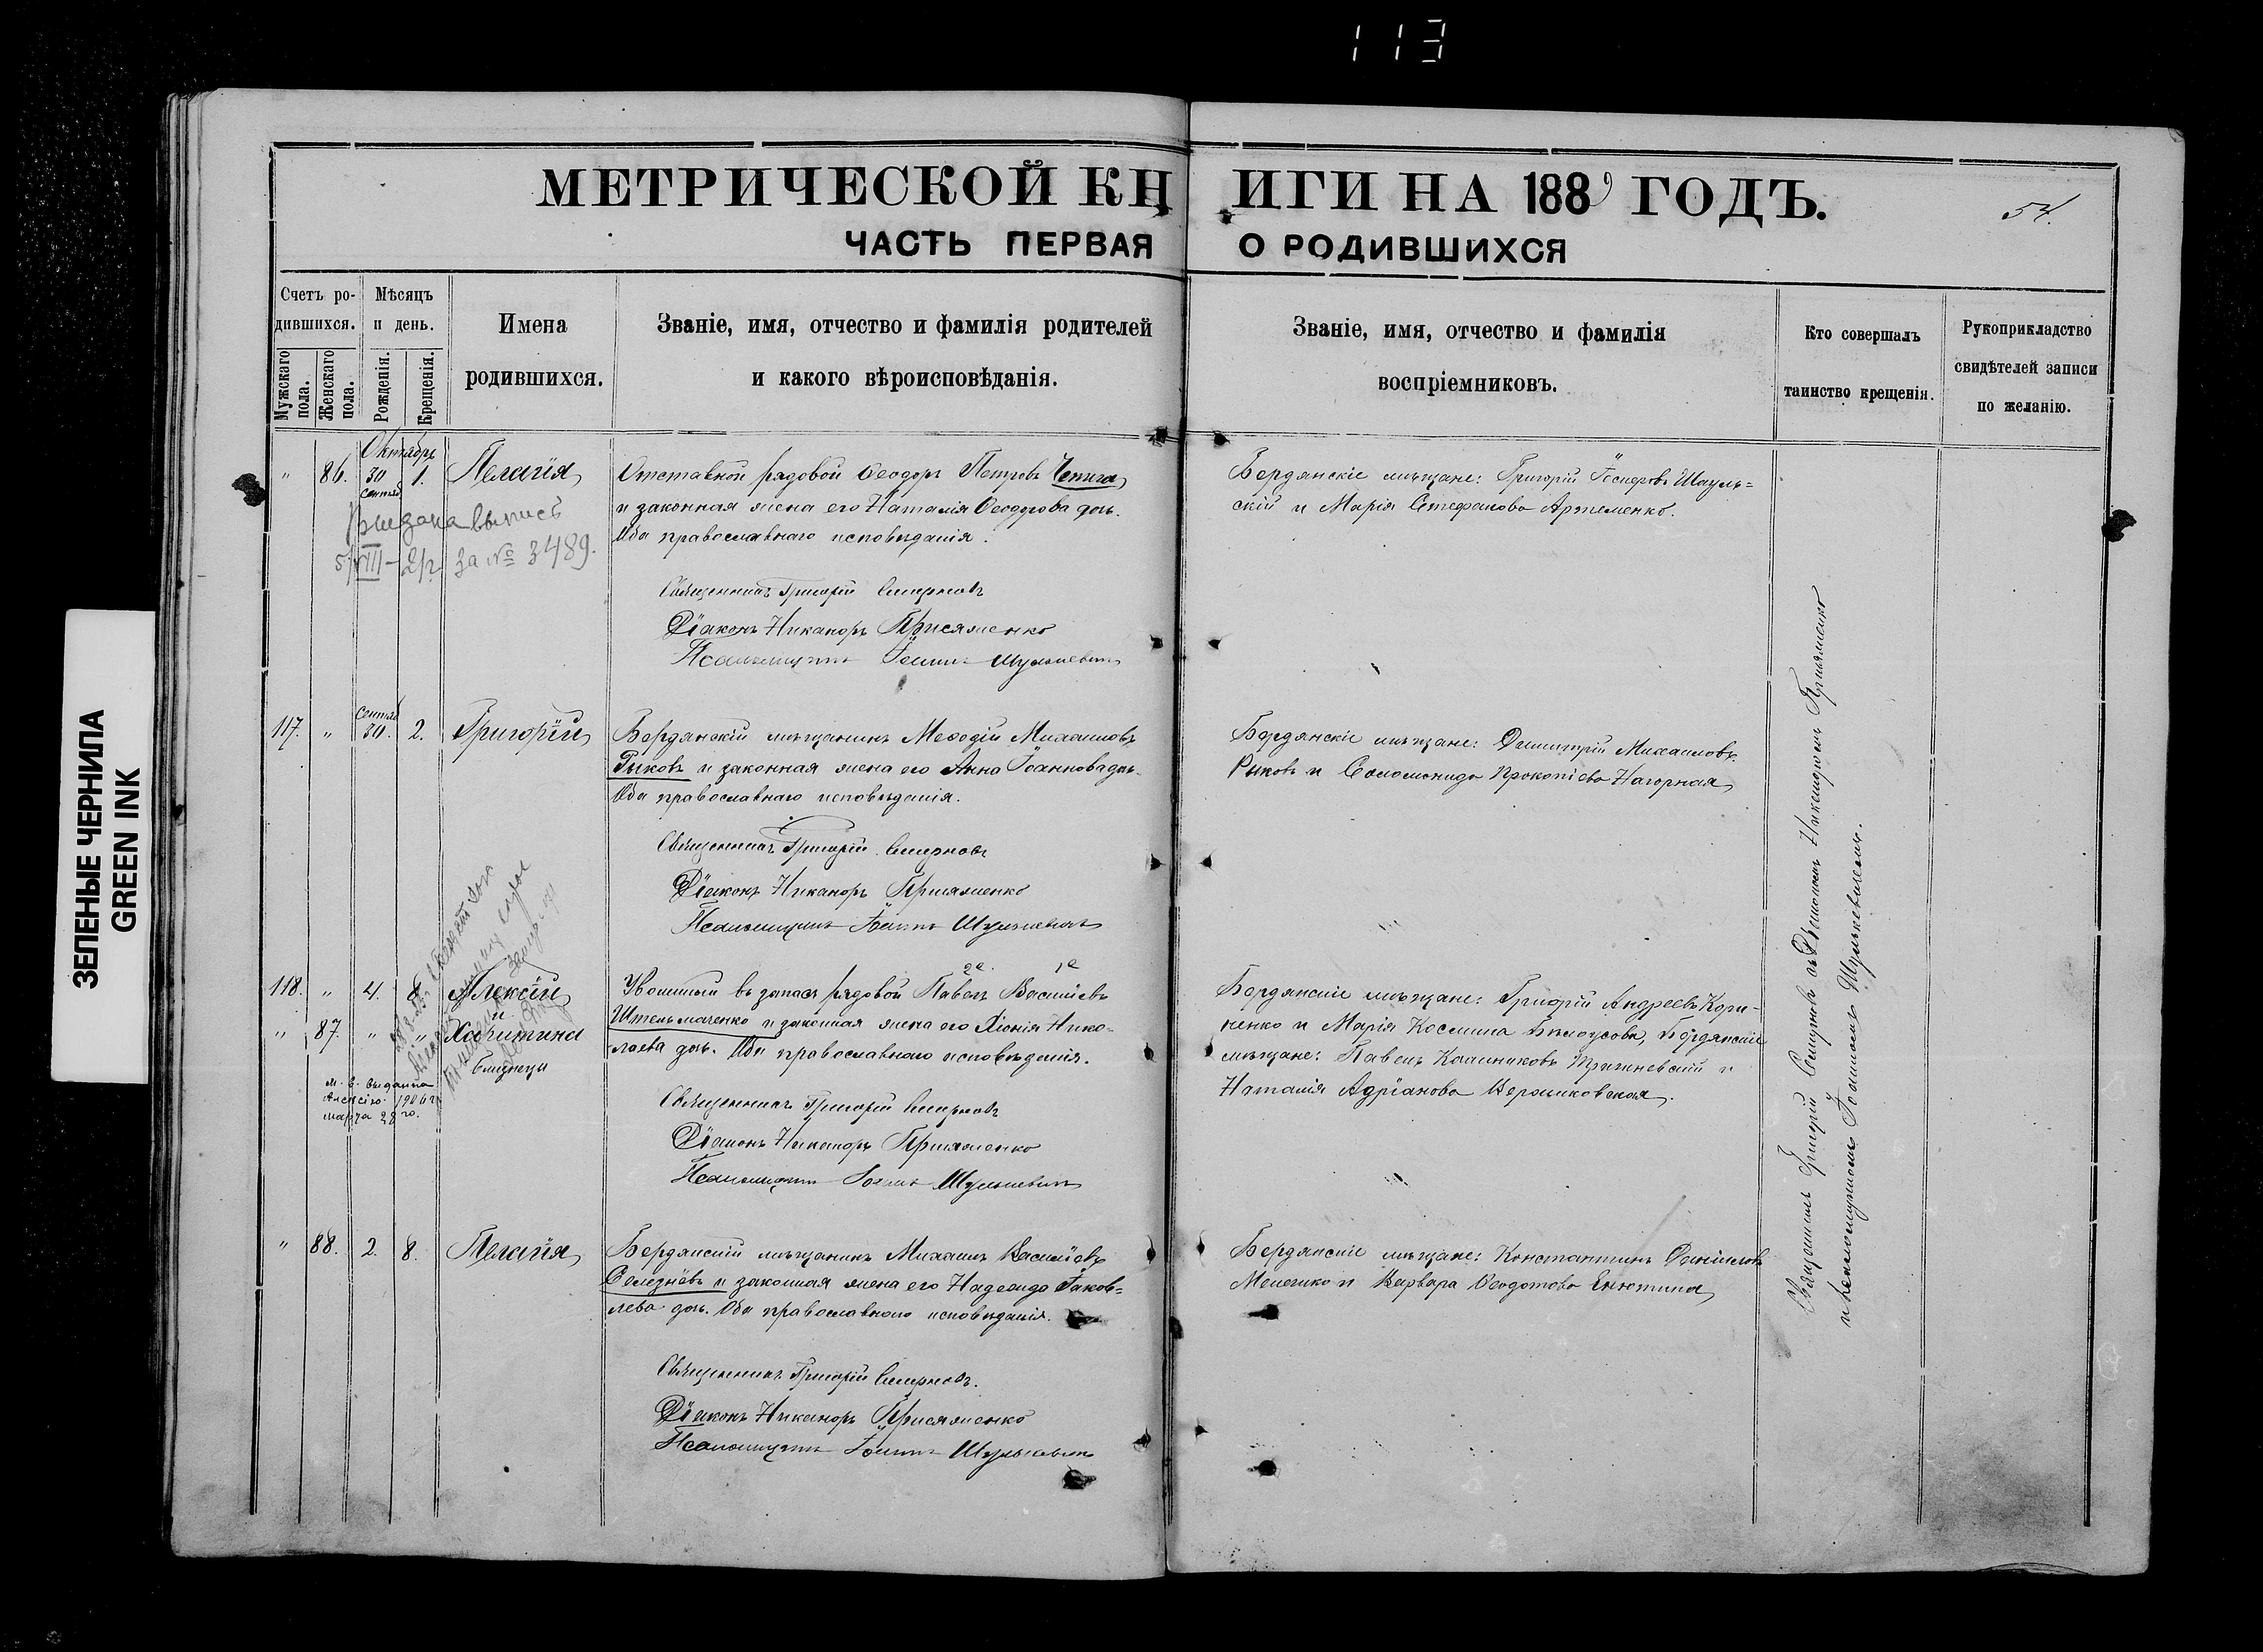 113
МЕТРИЧЕСКОЙ КНИГИ НА 1889 ГОДЪ.
54.
ЧАСТЬ ПЕРВАЯ О РОДИВШИХСЯ
Счетъ родившихся.
Мужскаго пола.
Женскаго пола.
Мѣсяцъ и день.
Рожденія.
Крещенія.
Имена родившихся.
Званіе, имя, отчество и фамилія родителей
и какого вѣроисповѣданія.
Званіе, имя, отчество и фамилія
воспріемниковъ.
Кто совершалъ
таинство крещенія.
Рукоприкладство
свидѣтелей записи
по желанію.
Октябрь
" 86. 30 сентяб 1. Пелагія
Отставной рядовой Ѳеодоръ Петровъ Чепига
и законная жена его Наталія Ѳеодорова дочь.
Оба православнаго исповѣданія.
Бердянскіе мѣщане: Григорій Іосифовъ Шауль=
скій и Марія Стефанова Артеменко.
выдана выпись
5/VIII-21г за № 3489.
Священникъ Григорій Смирновъ
Діаконъ Никаноръ Присяженко
Псаломщикъ Іоаннъ Шулькевичъ
117. " сентяб 30. 2. Григорій
Бердянскій мѣщанинъ Меѳодій Михаиловъ
Рыковъ и законная жена его Анна Іоаннова дочь.
Оба православнаго исповѣданія.
Бердянскіе мѣщане: Димитрій Михаиловъ
Рыковъ и Соломонида Прокопіева Нагорная
Священникъ Григорій Смирновъ
Діаконъ Никаноръ Присяженко
Псаломщикъ Іоаннъ Шулькевичъ
118. " 4. 8. Алексій
" 87. " " и Харитина
близнецы
2е. 1е
Уволенный въ запасъ рядовой Павелъ Васильевъ
Штельмаченко и законная жена его Хіонія Нико-
лаева дочь. Оба православнаго исповѣданія.
Бердянскіе мѣщане: Григорій Андреевъ Кори-
ненко и Марія Космина Бѣлоусова, Бердянскіе
мѣщане: Павелъ Калинниковъ и
Наталія Адріанова
М. С. выдана
Алексію 1906 г.
марта 28 го.
Священникъ Григорій Смирновъ
Діаконъ Никаноръ Присяженко
Псаломщикъ Іоаннъ Шулькевичъ
" 88. 2. 8. Пелагія
Бердянскій мѣщанинъ Михаилъ Васильевъ
Селезнёвъ и законная жена его Надежда Іаков=
лева дочь. Оба православнаго исповѣданія.
Бердянскіе мѣщане: Константинъ Даніиловъ
Мелешко и Варвара Ѳеодотова Енютина
Священникъ Григорій Смирновъ.
Діаконъ Никаноръ Присяженко
Псаломщикъ Іоаннъ Шулькевичъ
Священникъ Григорій Смирновъ съ Діакономъ Никаноромъ Присяженко
и псаломщикомъ Іоанномъ Шулькевичемъ.
ЗЕЛЕНЫЕ ЧЕРНИЛА
GREEN INK